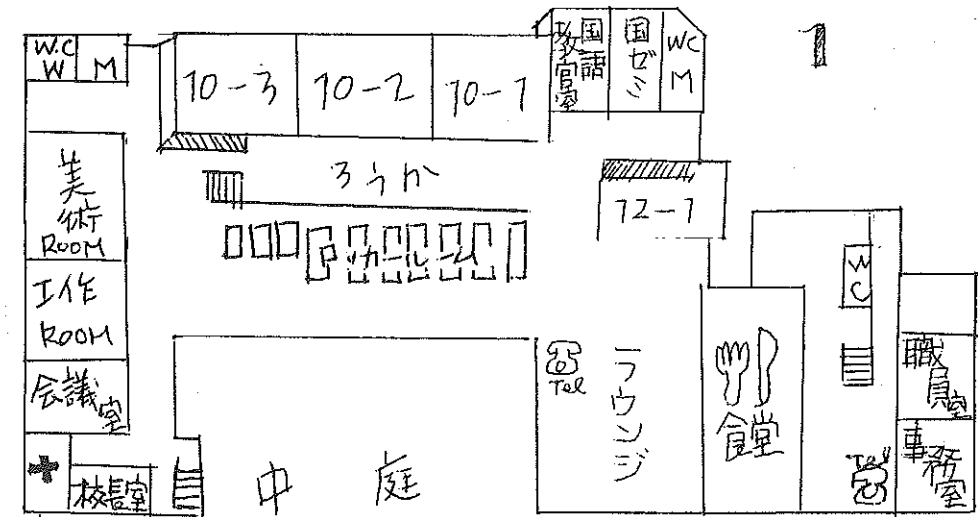 W.C
W
M
10-3
10-2
10-1
国語
教官室
国ゼミ
WC
M
1
美術
ROOM
ろうか
12-1
ロッカールーム
工作
ROOM
WC
会議室
Tel
ラウンジ
食堂
職員室
校長室
中庭
Tel
事務室